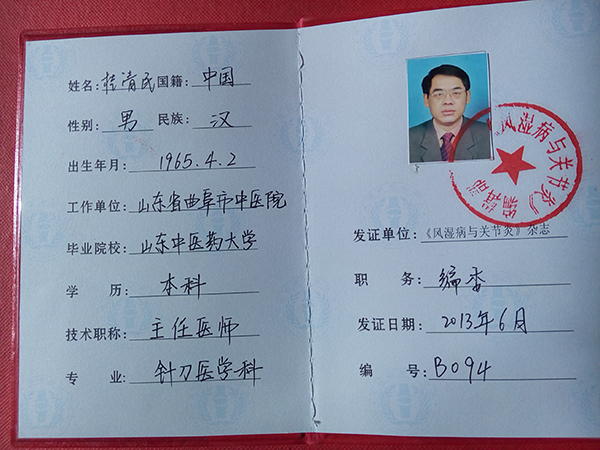 姓名:桂清民 国籍:中国
性别:男 民族:汉
出生年月:1965.4.2
工作单位:山东省曲阜市中医院
毕业院校:山东中医药大学
学 历:本科
技术职称:主任医师
专 业:针刀医学科
《风湿病与关节炎》
编辑部
发证单位:《风湿病与关节炎》杂志
职 务:编委
发证日期:2013年6月
编 号:B094